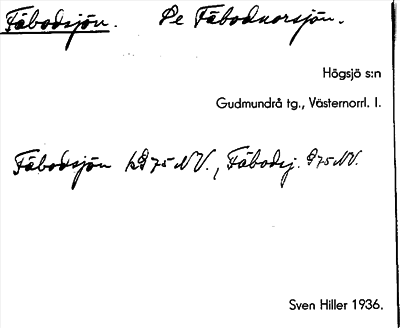 Fäbodsjön. Se Fäbodnorsjön.
Högsjö s:n
Gudmundrå tg., Västernorrl. l.
Fäbodsjön kG 75 NV., Fäbodsj. G 75 NV.
Sven Hiller 1936.